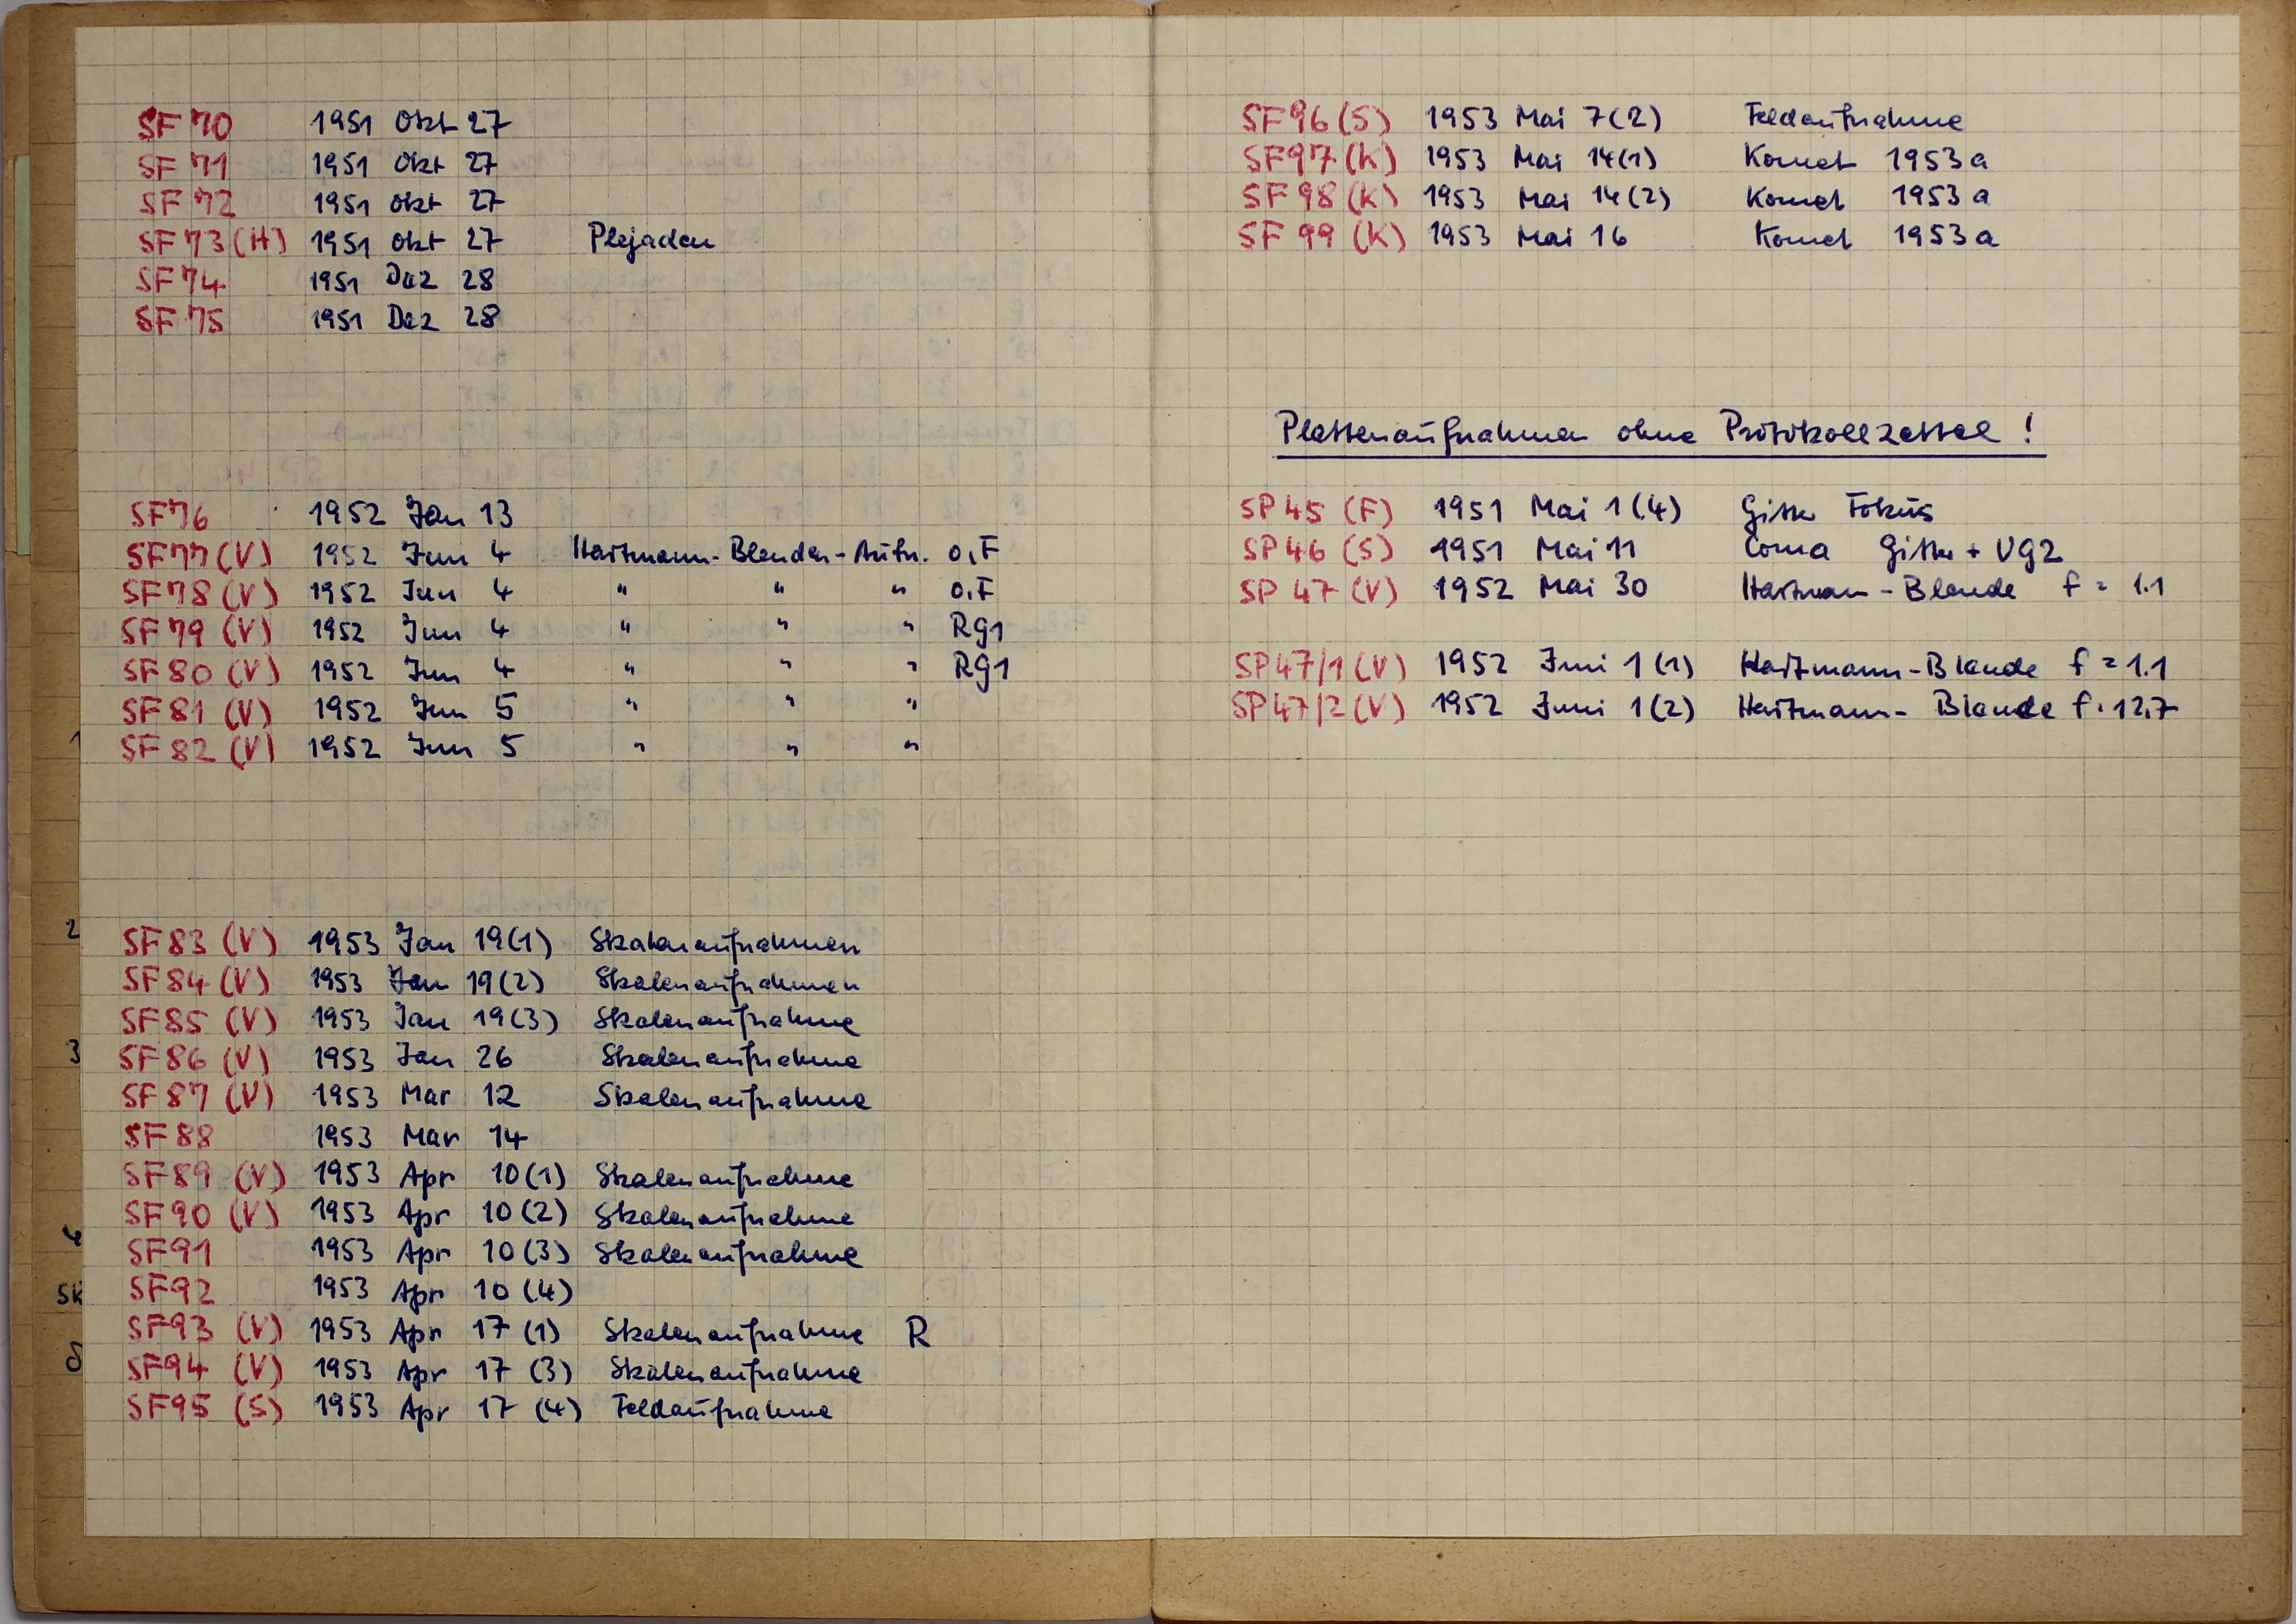 SF 70 1951 Okt 27
SF 71 1951 Okt 27
SF 72 1951 Okt 27
SF 73 (H) 1951 Okt 27 Plejaden
SF 74 1951 Dez 28
SF 75 1951 Dez 28
SF 76 1952 Jan 13
SF 77 (V) 1952 Jun 4 Hartmann-Blenden-Aufn. o.F
SF 78 (V) 1952 Jun 4 " " " o.F
SF 79 (V) 1952 Jun 4 " " " Rg1
SF 80 (V) 1952 Jun 4 " " " Rg1
SF 81 (V) 1952 Jun 5 " " "
1 SF 82 (V) 1952 Jun 5 " " "
2 SF 83 (V) 1953 Jan 19(1) Skalenaufnahmen
SF 84 (V) 1953 Jan 19(2) Skalenaufnahmen
SF 85 (V) 1953 Jan 19(3) Skalenaufnahme
3 SF 86 (V) 1953 Jan 26 Skalenaufnahme
SF 87 (V) 1953 Mar 12 Skalenaufnahme
SF 88 1953 Mar 14
SF 89 (V) 1953 Apr 10(1) Skalenaufnahme
SF 90 (V) 1953 Apr 10(2) Skalenaufnahme
SF 91 1953 Apr 10(3) Skalenaufnahme
SK SF 92 1953 Apr 10(4)
SF 93 (V) 1953 Apr 17 (1) Skalenaufnahme R
SF 94 (V) 1953 Apr 17 (3) Skalenaufnahme
SF 95 (S) 1953 Apr 17 (4) Feldaufnahme
SF 96 (S) 1953 Mai 7(2) Feldaufnahme
SF 97 (K) 1953 Mai 14(1) Komet 1953a
SF 98 (K) 1953 Mai 14(2) Komet 1953a
SF 99 (K) 1953 Mai 16 Komet 1953a
Plattenaufnahmen ohne Protokollzettel !
SP 45 (F) 1951 Mai 1(4) Gitter Fokus
SP 46 (S) 1951 Mai 11 Coma Gitter + VG2
SP 47 (V) 1952 Mai 30 Hartmann-Blende f = 1.1
SP 47/1 (V) 1952 Juni 1(1) Hartmann-Blende f = 1.1
SP 47/2 (V) 1952 Juni 1(2) Hartmann-Blende f. 12,7